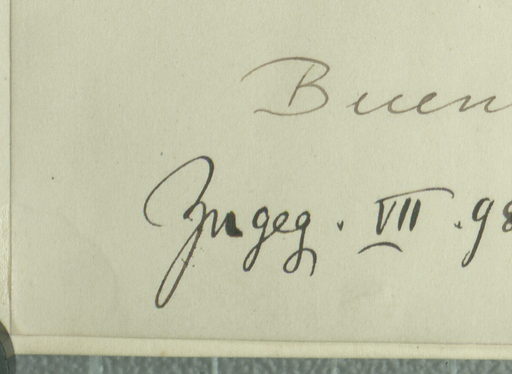 Buen
Zugeg. VII .98